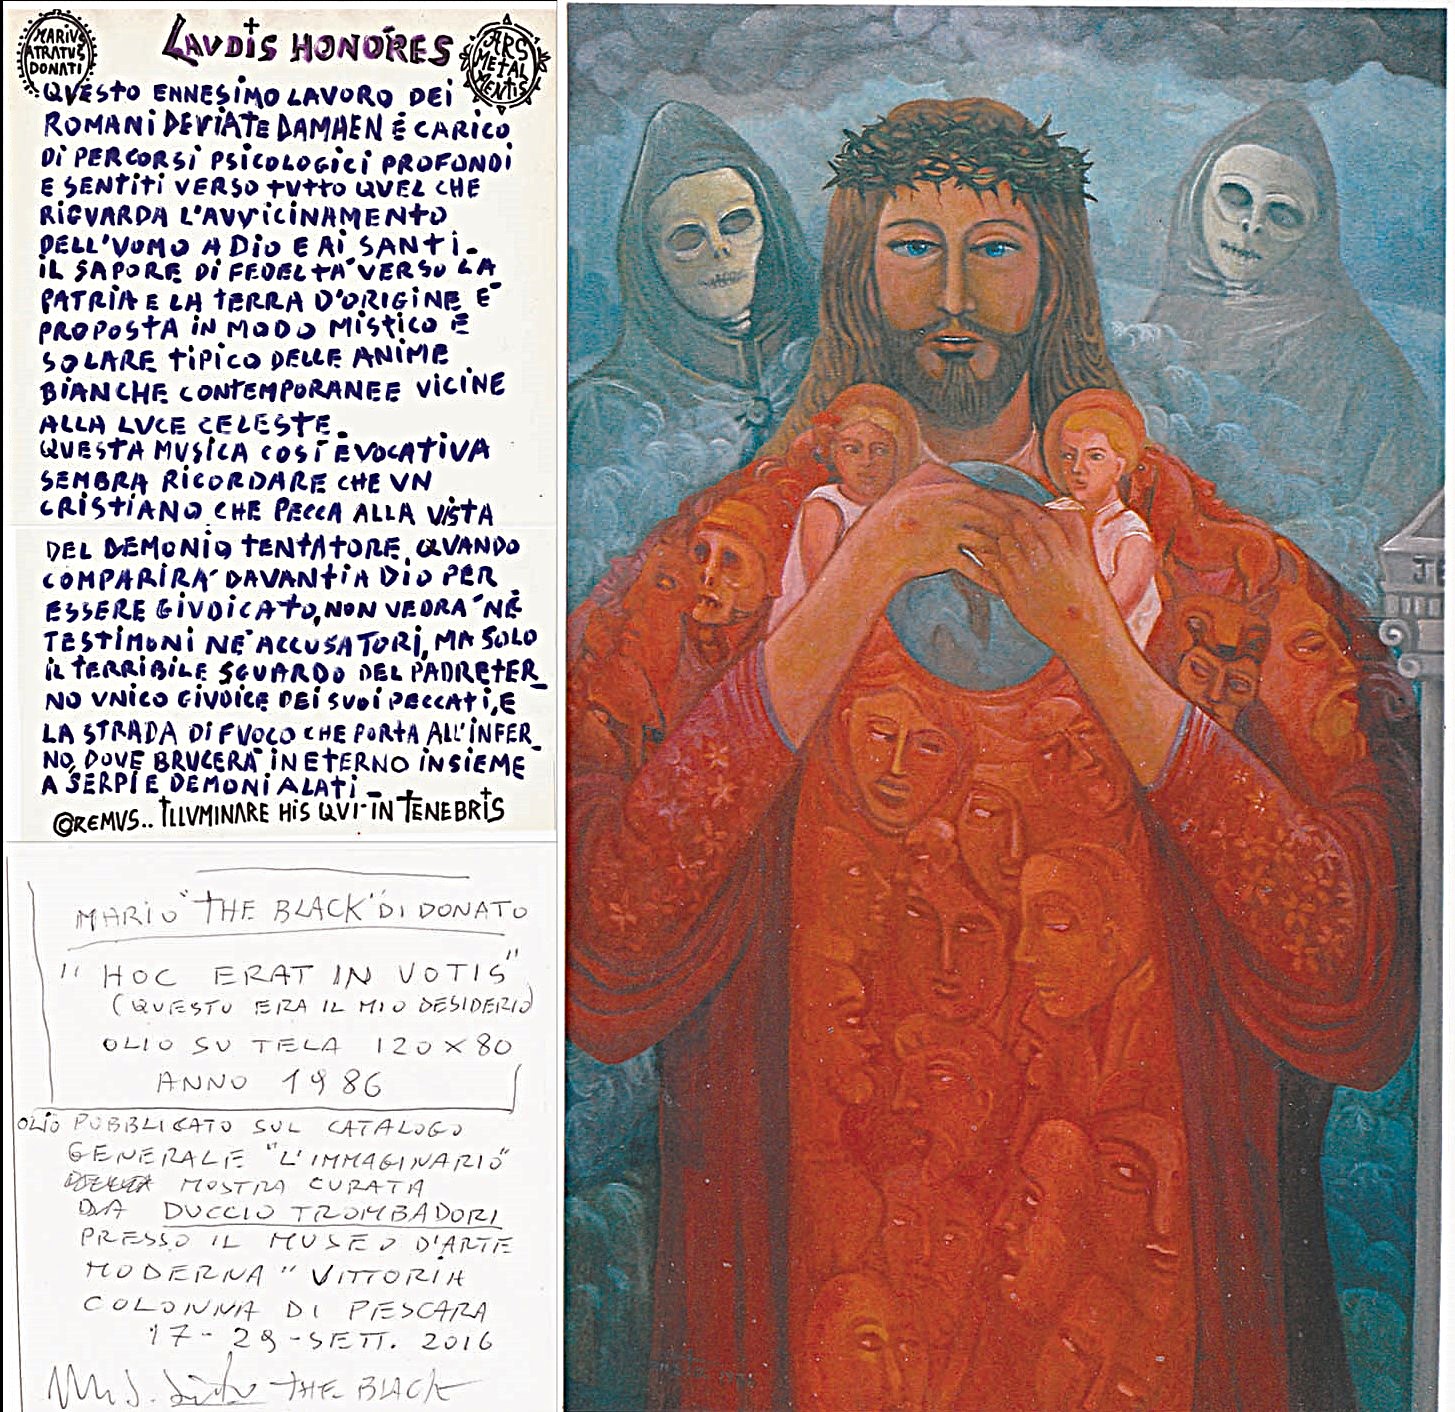 MARIVS
ATRATVS
DONATI
LAVDIS HONORES
ARS
METAL
MENTIS
QVESTO ENNESIMO LAVORO DEI
ROMANI DEVIATE DAMAEN È CARICO
DI PERCORSI PSICOLOGICI PROFONDI
E SENTITI VERSO TVTTO QVEL CHE
RIGVARDA L'AVVICINAMENTO
DELL'VOMO A DIO E AI SANTI-
IL SAPORE DI FEDELTA' VERSO LA
PATRIA E LA TERRA D'ORIGINE E'
PROPOSTA IN MODO MISTICO E
SOLARE TIPICO DELLE ANIME
BIANCHE CONTEMPORANEE VICINE
ALLA LVCE CELESTE-
QVESTA MVSICA COSI' EVOCATIVA
SEMBRA RICORDARE CHE VN
CRISTIANO CHE PECCA ALLA VISTA
DEL DEMONIO TENTATORE, QVANDO
COMPARIRA' DAVANTI A DIO PER
ESSERE GIVDICATO, NON VEDRA' NÉ
TESTIMONI NE' ACCUSATORI, MA SOLO
IL TERRIBILE SGVARDO DEL PADRETER_
NO VNICO GIVDICE DEI SUOI PECCATI, E
LA STRADA DI FVOCO CHE PORTA ALL'INFER_
NO, DOVE BRUCERA' IN ETERNO INSIEME
A SERPI E DEMONI ALATI-
©REMVS.. ILLVMINARE HIS QVI IN TENEBRIS
MARIO "THE BLACK" DI DONATO
"HOC ERAT IN VOTIS"
(QUESTO ERA IL MIO DESIDERIO)
OLIO SU TELA 120X80
ANNO 1986
OLIO PUBBLICATO SUL CATALOGO
GENERALE "L'IMMAGINARIO"
MOSTRA CURATA
DA DUCCIO TROMBADORI
PRESSO IL MUSEO D'ARTE
MODERNA "VITTORIA
COLONNA DI PESCARA
17-29-SETT. 2016
THE BLACK